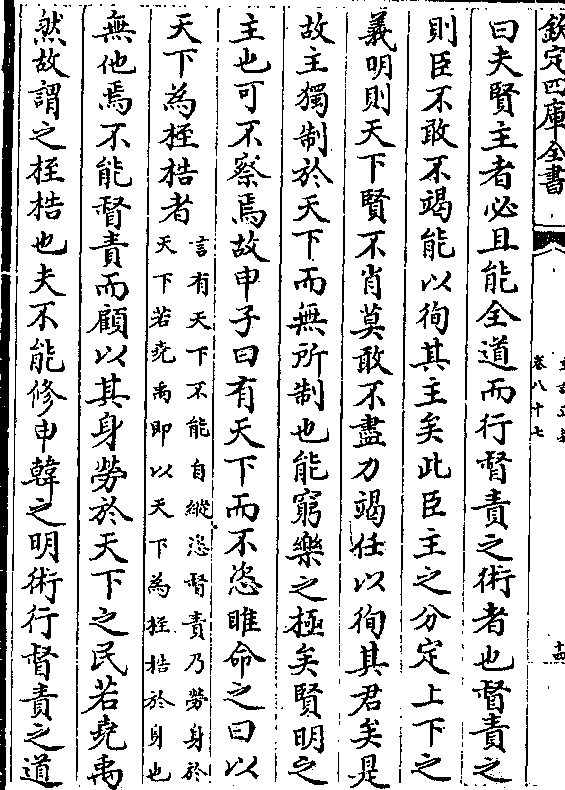 欽定四庫全書
卷八十七
曰夫賢主者必且能全道而行督責之術者也督責之
則臣不敢不竭能以徇其主矣此臣主之分定上下之
義明則天下賢不肖莫敢不盡力竭任以徇其君矣是
故主獨制於天下而無所制也能窮樂之極矣賢明之
主也可不察焉故申子曰有天下而不恣睢命之曰以
天下為桎梏者
言有天下不能自縱恣督責乃勞身於
天下若堯禹即以天下為桎梏於身也
無他焉不能督責而顧以其身勞於天下之民若堯禹
然故謂之桎梏也夫不能修申韓之明術行督責之道